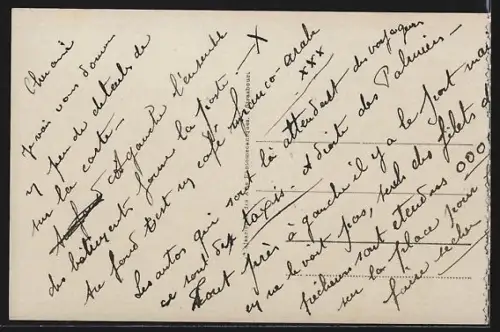 Cher ami
je vais vous donner
un peu de details de
sur la carte –
A gauche l'ensemble
des bâtiment forme la poste – X
Au fond est un café franco-arabe
xxx
Les autos qui sont là attendant des voyageurs
ce sont des taxis. A droite des Palmiers –
Tout près à gauche il y a le port mais
on ne le voit pas, seuls des filets de
pêcheurs sont etendus OOO
sur la place pour
faire secher